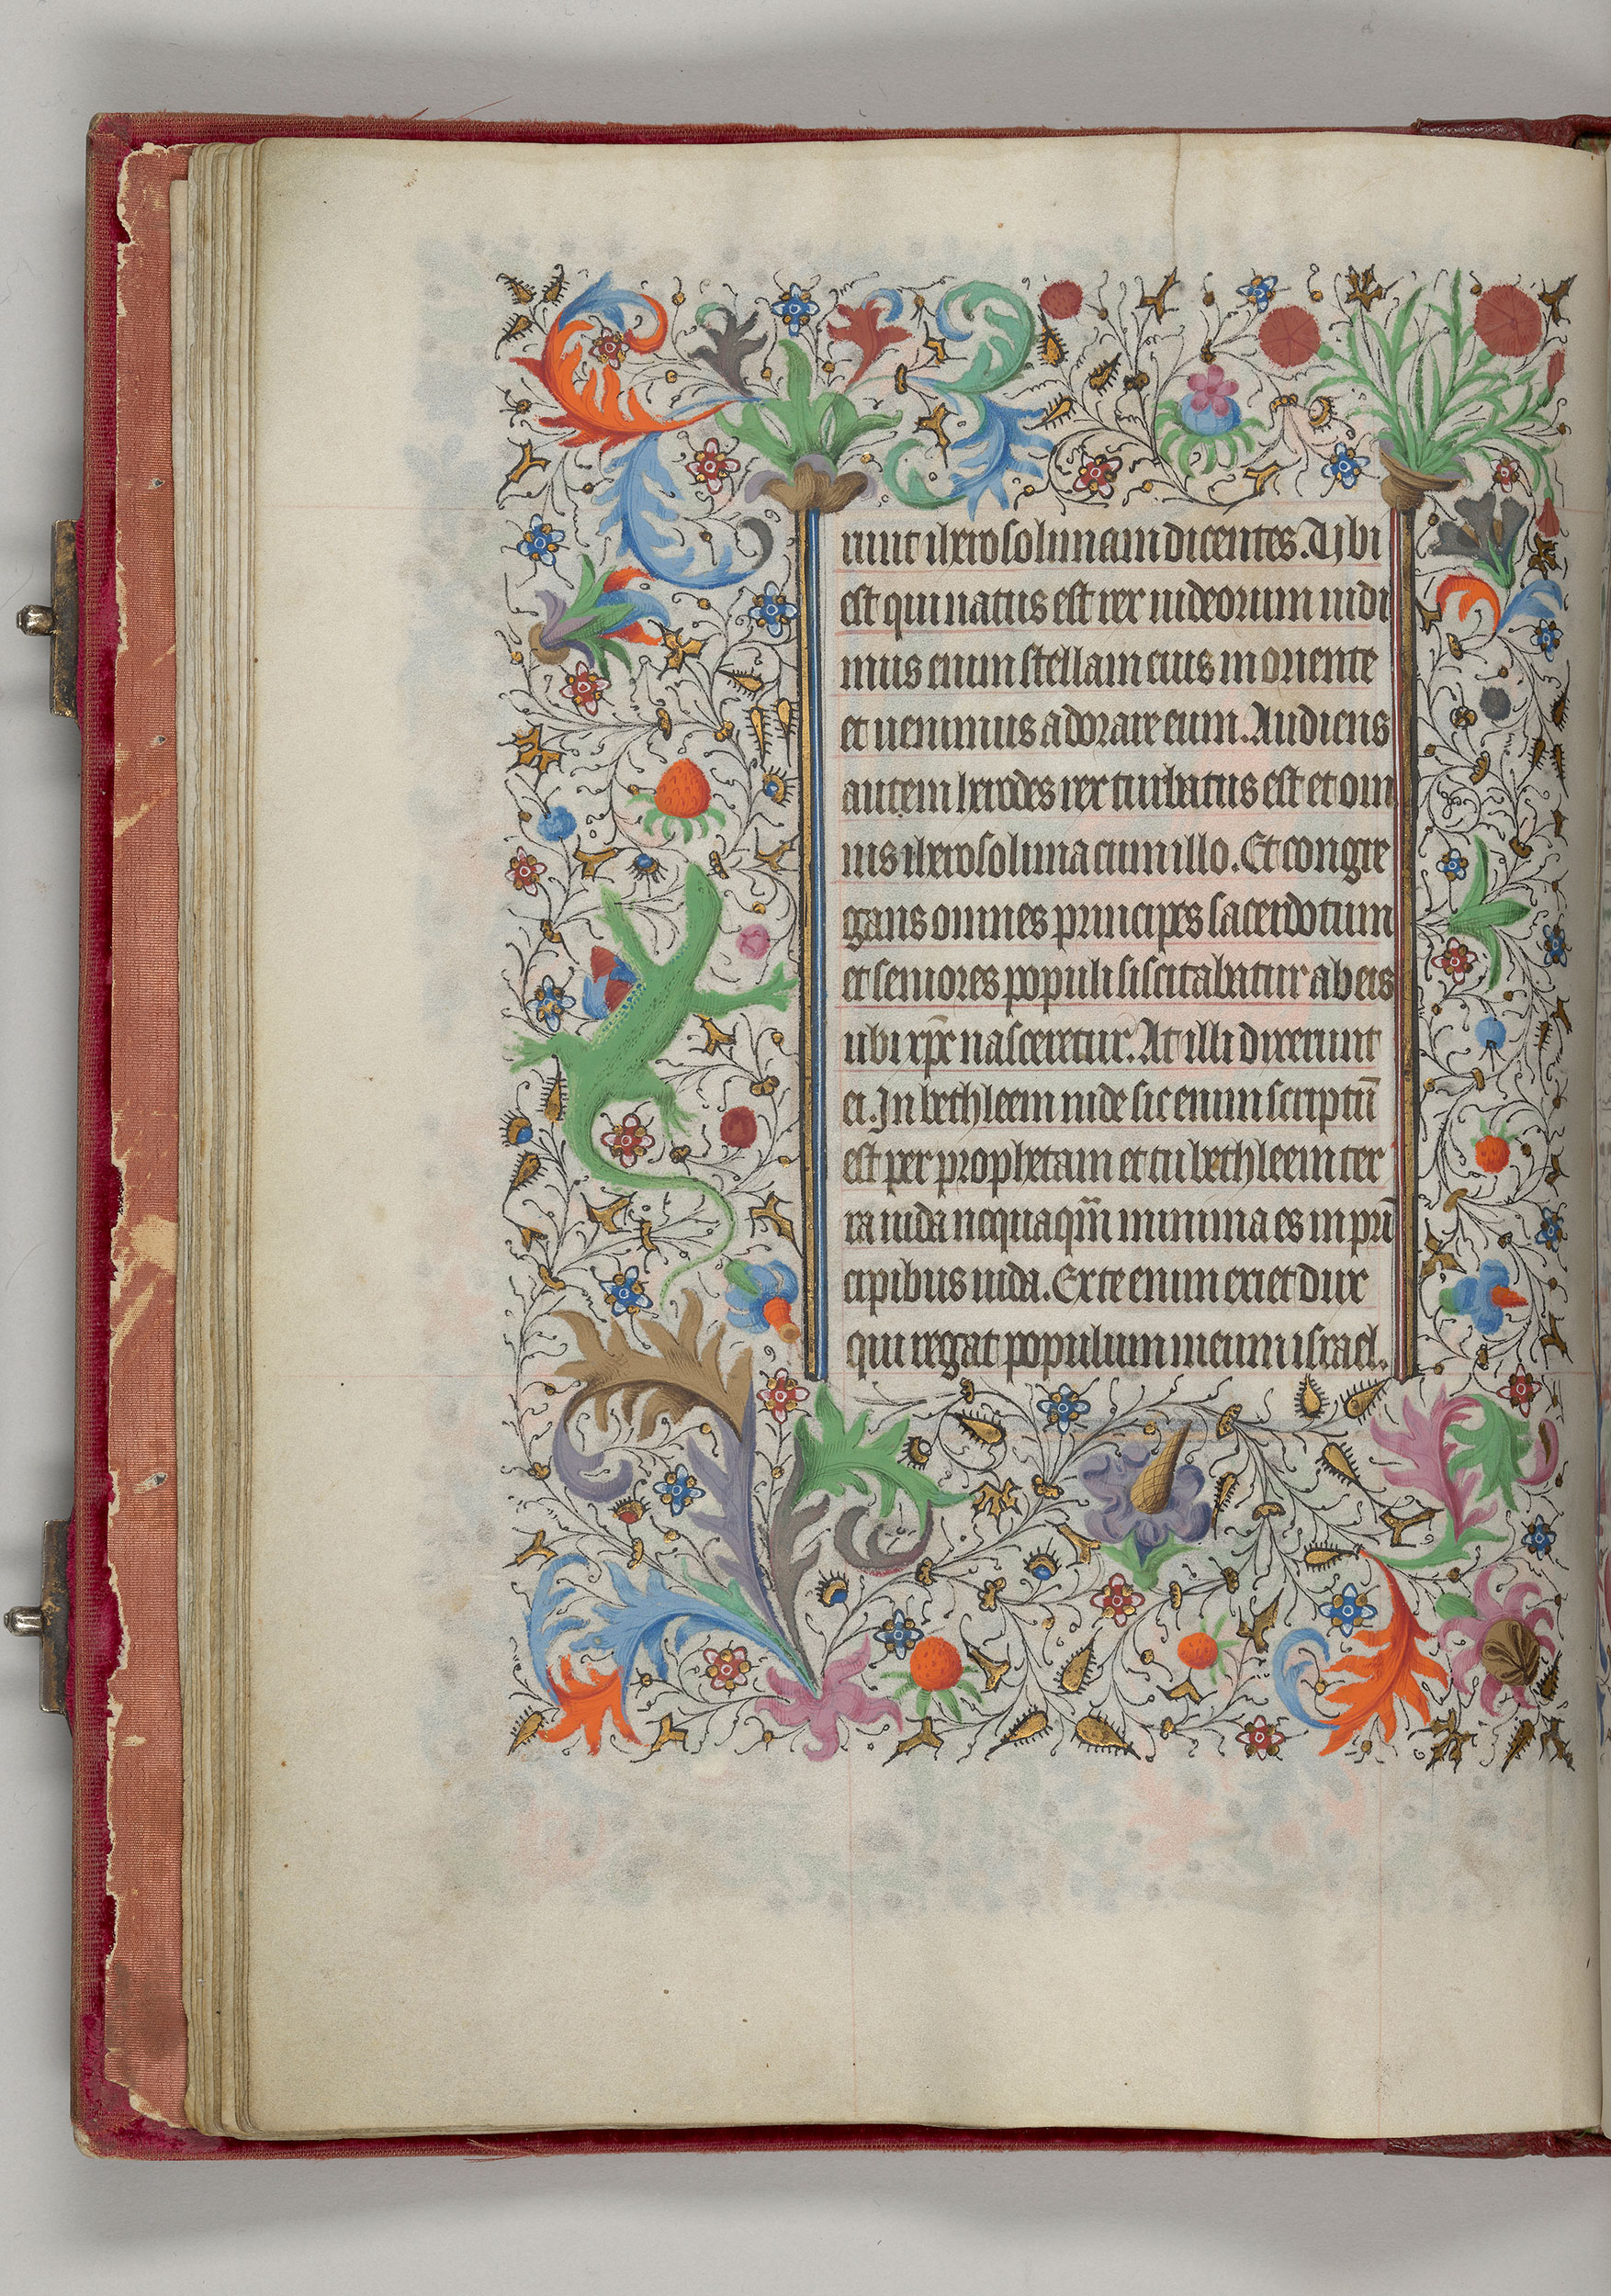 runt iherosolimam dicentes. Vbi
est qui natus est rex iudeorum uidi
mus enim stellam eius in oriente
et uenimus adorare eum. Audiens
autem herodes rex turbatus est et om
nis iherosolima cum illo. Et congre
gans omnes principes sacerdotum
et seniores populi siscitabatur ab eis
ubi xp̄c nasceretur. At illi dixerunt
ei. In bethleem iude sic enim scriptū
est per prophetam et tu bethleem ter
ra iuda nequaqm̄ minima es in pri
cipibus iuda. Ex te enim exiet dux
qui regat populum meum israel.